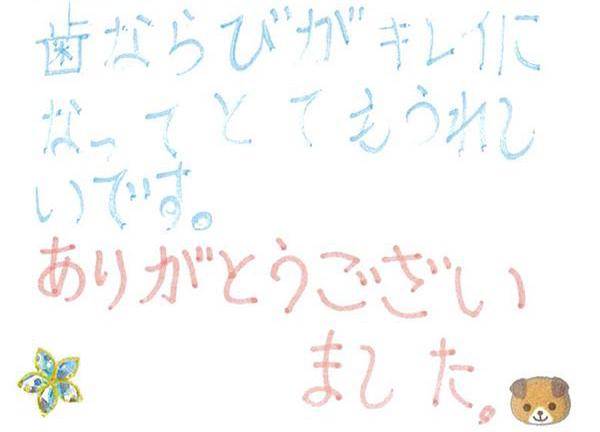 歯ならびがキレイに
なってとてもうれし
いです。
ありがとうござい
ました。